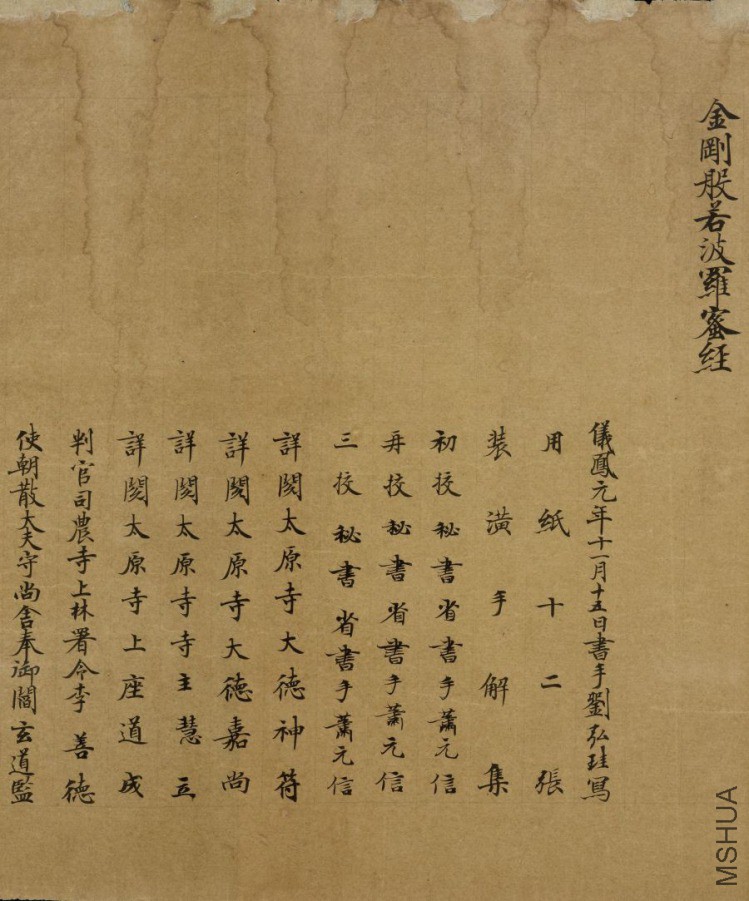 金剛般若波羅蜜經
儀鳳元年十一月十五日書手劉弘珪寫
用紙十二張
装潢手解集
初校秘書省書手蕭元信
再校秘書省書手蕭元信
三校秘書省書手蕭元信
詳閱太原寺大德神符
詳閱太原寺大德嘉尚
詳閱太原寺寺主慧立
詳閱太原寺上座道成
判官司農寺上林署令李善德
使朝散大夫守尚舍奉御閻玄道監
MSHUA